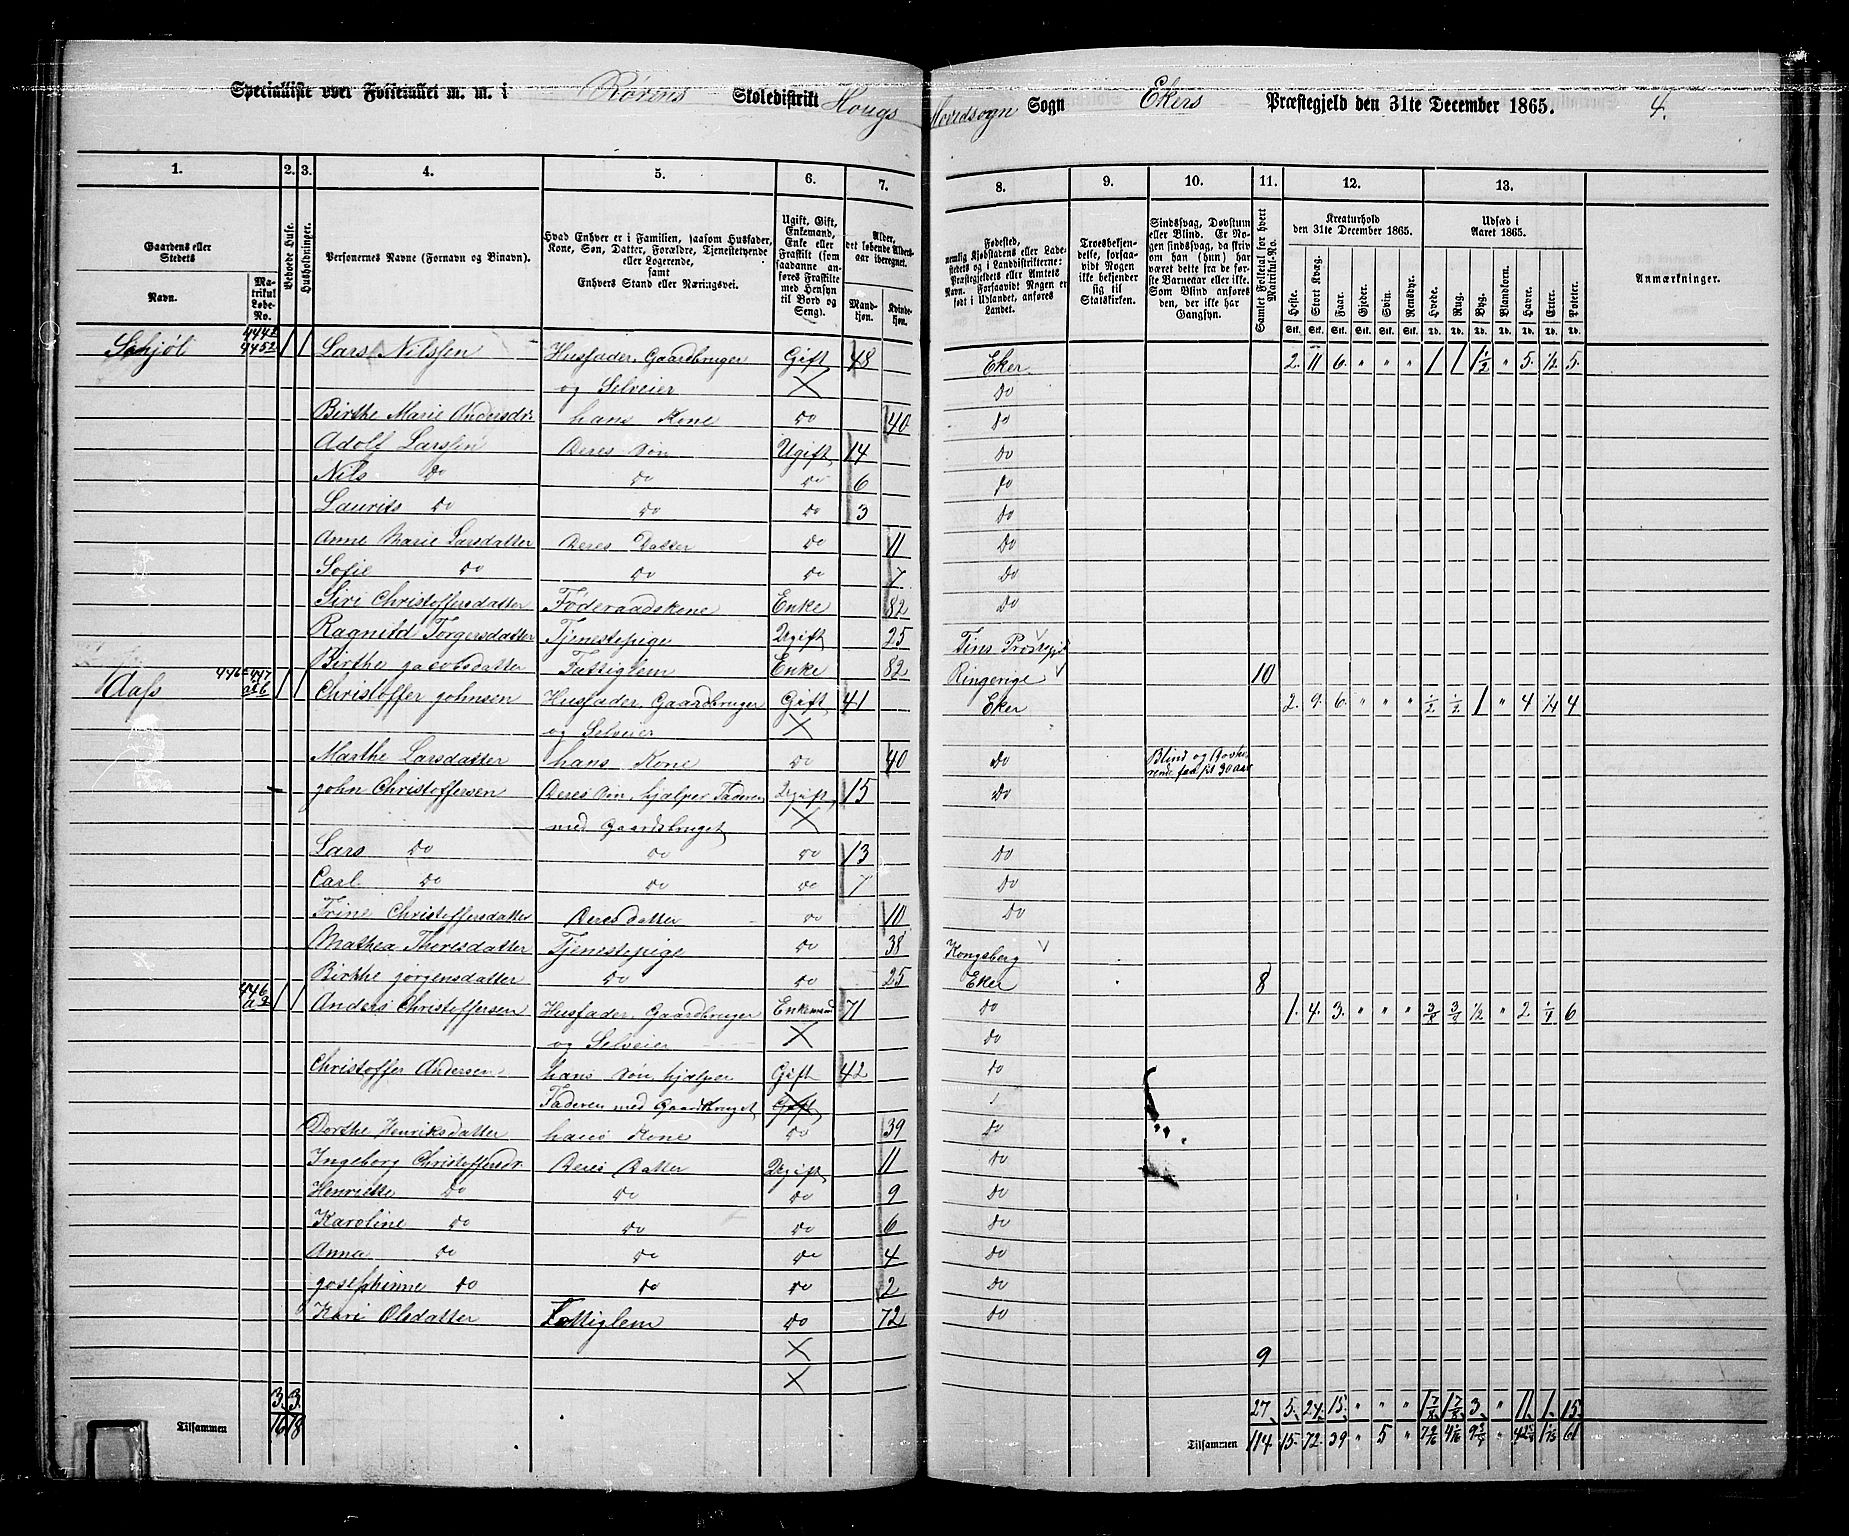 Specialliste over Folketallet m. m. i Rørens Skoledistrikt Hougs Hovedsogn Sogn Ekers Præstegjeld den 31te December 1865. 4.
1. 2. 3. 4. 5. 6. 7. 8. 9. 10. 11. 12. 13.
Gaardens eller Stedets
Navn.
Matrikul Løbe-No.
Beboede Huse.
Husholdninger.
Personernes Navne (Fornavn og Binavn).
Hvad Enhver er i Familien, saasom Husfader, Kone, Søn, Datter, Forældre, Tjenestetyende eller Logerende, samt Enhvers Stand eller Næringsvei.
Ugift, Gift, Enkemand, Enke eller Fraskilt (som saadanne anføres Fraskilte med Hensyn til Bord og Seng).
Alder, det løbende Aldersaar iberegnet.
Mandkjøn. Kvindekjøn.
Fødested, nemlig Kjøbstadens eller Ladestedets og i Landdistrikterne: Præstegjeldets eller Amtets Navn. Forsaavidt Nogen er født i Udlandet, anføres Landet.
Troesbekjendelse, forsaavidt Nogen ikke bekjender sig til Statskirken.
Sindssvag, Døvstum eller Blind. Er Nogen sindssvag, da skriv om han (hun) har været dette fra de første Barneaar eller ikke. Som Blind anføres den, der ikke har Gangsyn.
Samlet Folketal for hvert Matrikul-No.
Kreaturhold den 31te December 1865.
Heste. Stort Kvæg. Faar. Gjeder. Svin. Rensdyr.
Udsæd i Aaret 1865.
Hvede. Rug. Byg. Blandkorn. Havre. Erter. Poteter.
Anmærkninger.
4452 1 1 Lars Nilssen Husfader, Gaardbruger Gift 48 Eker 2. 11 6. " " " 1 1 1½ " 5. ½ 5.
og Selveier Do
Birthe Marie Andersdr. hans Kone do 40 do
Adolf Larssen Deres Søn Ugift 14 Do
Nils Do Do Do 6 do
Laurits do do do 3 do
Anne Marie Larsdatter Deres Datter do 11 Do
Sofie do do do 7 Do
Siri Christoffersdatter Føderaadskone Enke 82 Do
Ragnild Torgersdatter Tjenestepige Ugift 25 Tins
Birthe Jacobsdatter Fattiglem Enke 82 Ringerige 10
Aass 1 1 Christoffer Johnsen Husfader, Gaardbruger Gift 41 Eker 2. 9. 6. " " " ½ ½ 1 " 4 ¼ 4
og Selveier
Marthe Larsdatter hans Kone do 40 do Blind og
John Christoffersen Deres Søn, hjælper Faderen Ugift 15 Do
med Gaardsbruget
Lars do do do 13 do
Carl do do do 7 Do
Trine Christoffersdatter Deres datter do 10 Do
Mathea Theresdatter Tjenestepige do 38 Kongsberg
Birthe Jørgensdatter do do 25 Eker 8
446 1 1 Anders Christoffersen Husfader, Gaardbruger Enkemand 71 do 1. 4. 3. " " " 3/8 3/8 ½ " 2. ¼ 6
og Selveier Do
Christoffer Andersen hans Søn, hjælper Gift 42 do
Faderen med Gaardbruget Gift
Dorthe Henriksdatter hans Kone do 39 Do
Ingeborg Christoffersdr. Deres Datter Ugift 11 do
Henriette do do do 9 do
Karoline do do do 6 do
Anna do do do 4 do
Josephinne do do do 2 do
Kari Olsdatter Fattiglem do 72 do
9
3. 3. 27 5. 24. 15. " " " 1 7/8 1 7/8 3. " 11. 1. 15.
Tilsammen 16 18 Tilsammen 114 15. 72. 39 " 5 " 61